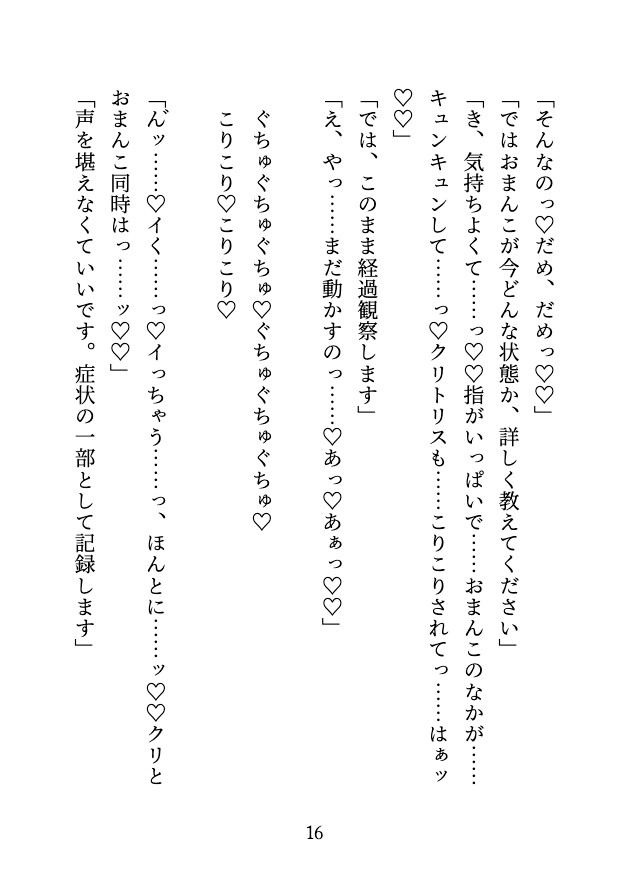 「そんなのっ♡だめ、だめっ♡♡」
「ではおまんこが今どんな状態か、詳しく教えてください」
「き、気持ちよくて……っ♡♡指がいっぱいで……おまんこのなかが……
キュンキュンして……っ♡クリトリスも……こりこりされてっ……はぁッ
♡♡」
「では、このまま経過観察します」
「え、やっ……まだ動かすのっ……♡あっ♡あぁっ♡♡」
ぐちゅぐちゅぐちゅ♡ぐちゅぐちゅぐちゅ♡
こりこり♡こりこり♡
「ん゛ッ……♡イく……っ♡イっちゃう……っ、ほんとに……ッ♡♡クリと
おまんこ同時はっ……ッ♡♡」
「声を堪えなくていいです。症状の一部として記録します」
16